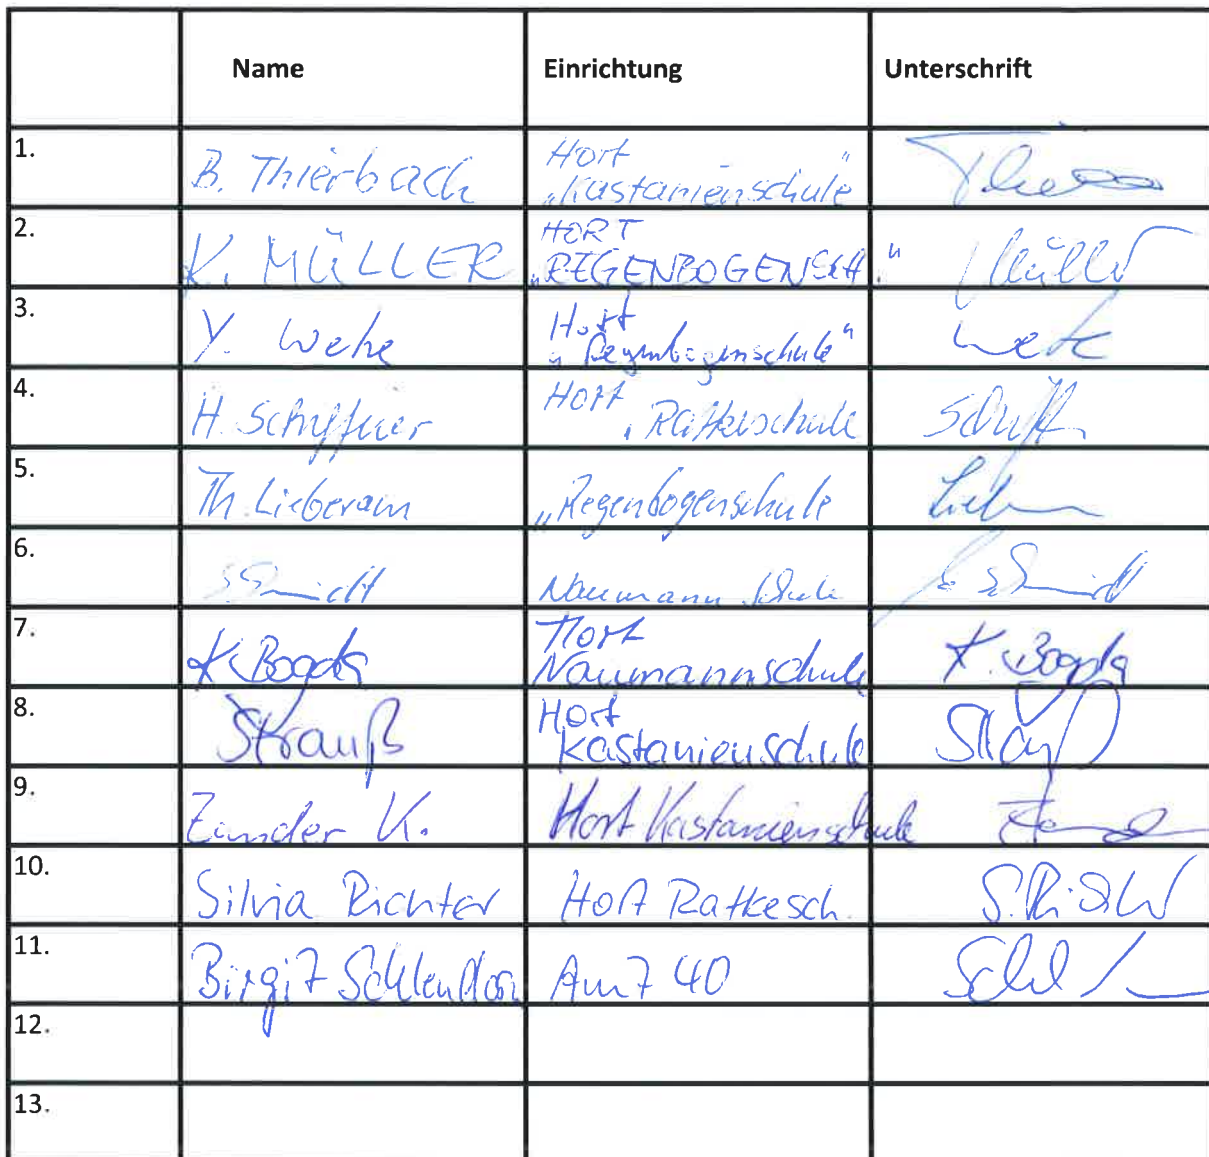 Name Einrichtung Unterschrift
1. B. Thierbach Hort
„Kastanienschule"
2. K. MÜLLER HORT
„REGENBOGENSCH." Müller
3. Y. Wehe Hort
„Regenbogenschule"
4. H. Schiffner Hort
Ratkeschule Schiff
5. Th. Lieberam „Regenbogenschule
6. Schmidt Naumann Schule S. Schmidt
7. K. Bogda Hort
Naumannschule K. Bogda
8. Strauß Hort
Kastanienschule
9. Zander K. Hort Kastanienschule
10. Silvia Richter Hort Ratkesch. S. Richter
11. Birgit Amt 40
12.
13.